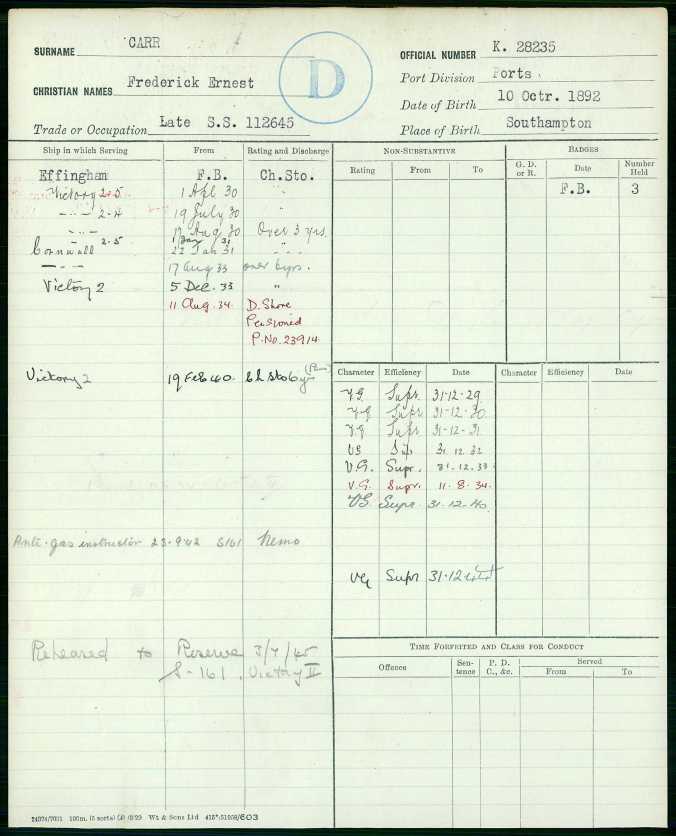 SURNAME CARR
CHRISTIAN NAMES Frederick Ernest
Trade or Occupation Late S.S. 112645
D
OFFICIAL NUMBER K. 28235
Port Division Ports
Date of Birth 10 Octr. 1892
Place of Birth Southampton
Ship in which Serving From Rating and Discharge
Effingham F.B. Ch.Sto.
Victory 2-5 1 Apl 30 "
—"— 2-4 19 July 30 "
Aug 30 Over 3 yrs.
Cornwall 2-5 22 Jan 31 "
—"— 17 Aug 33 over 6yrs.
Victory 2 5 Dec. 33 "
11 Aug. 34. D. Shore
Pensioned
P. No. 23914.
Victory 2 19 Feb 40. Ch Sto
Anti-gas instructor 23-9-42 S161 Memo
Released to Reserve 3/7/45
S-161. Victory II
NON-SUBSTANTIVE
Rating From To
BADGES
G. D. or R. Date Number Held
F.B. 3
Character Efficiency Date Character Efficiency Date
V.G. Supr. 31-12-29
V.G. Supr 31-12-30
V.G. Supr 31-12-31
VG Sup 31.12.32
V.G. Supr. 31.12.33
V.G. Supr. 11.8.34.
VG. Supr. 31-12-40
VG Supr 31-12
TIME FORFEITED AND CLASS FOR CONDUCT
Offence Sen-tence P. D. C., &c. Served
From To
24074/7021 100m. (5 sorts) 8/29 Wt & Sons Ltd 415 51058/603